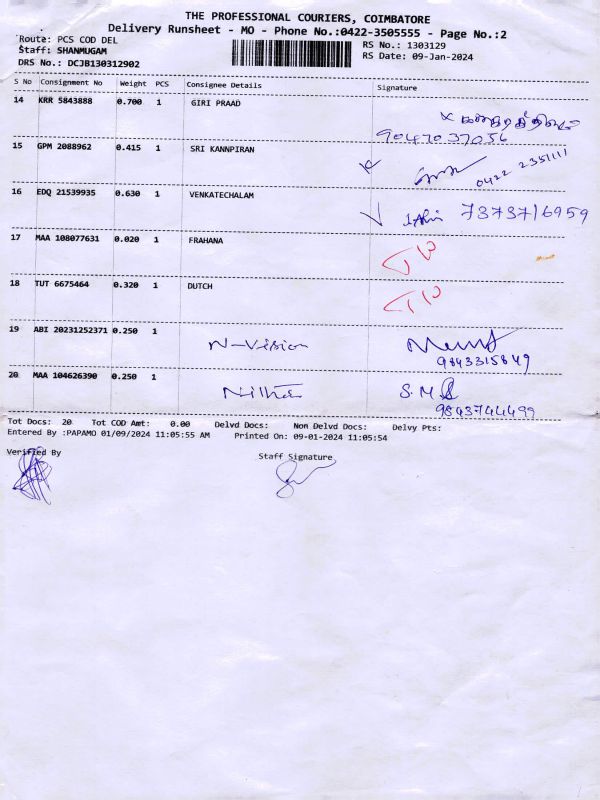 THE PROFESSIONAL COURIERS, COIMBATORE
Delivery Runsheet - MO - Phone No.:0422-3505555 - Page No.:2
Route: PCS COD DEL
RS No.: 1303129
Staff: SHANMUGAM
RS Date: 09-Jan-2024
DRS No.: DCJB130312902
S No Consignment No Weight PCS Consignee Details Signature
14 KRR 5843888 0.700 1 GIRI PRAAD
9047037056
15 GPM 2088962 0.415 1 SRI KANNPIRAN
0422 2351111
16 EDQ 21539935 0.630 1 VENKATECHALAM
7373716959
17 MAA 108077631 0.020 1 FRAHANA
18 TUT 6675464 0.320 1 DUTCH
19 ABI 20231252371 0.250 1 N-Vision
9843315849
20 MAA 104626390 0.250 1 S.M.
9843744499
Tot Docs: 20 Tot COD Amt: 0.00 Delvd Docs: Non Delvd Docs: Delvy Pts:
Entered By :PAPAMO 01/09/2024 11:05:55 AM Printed On: 09-01-2024 11:05:54
Verified By Staff Signature